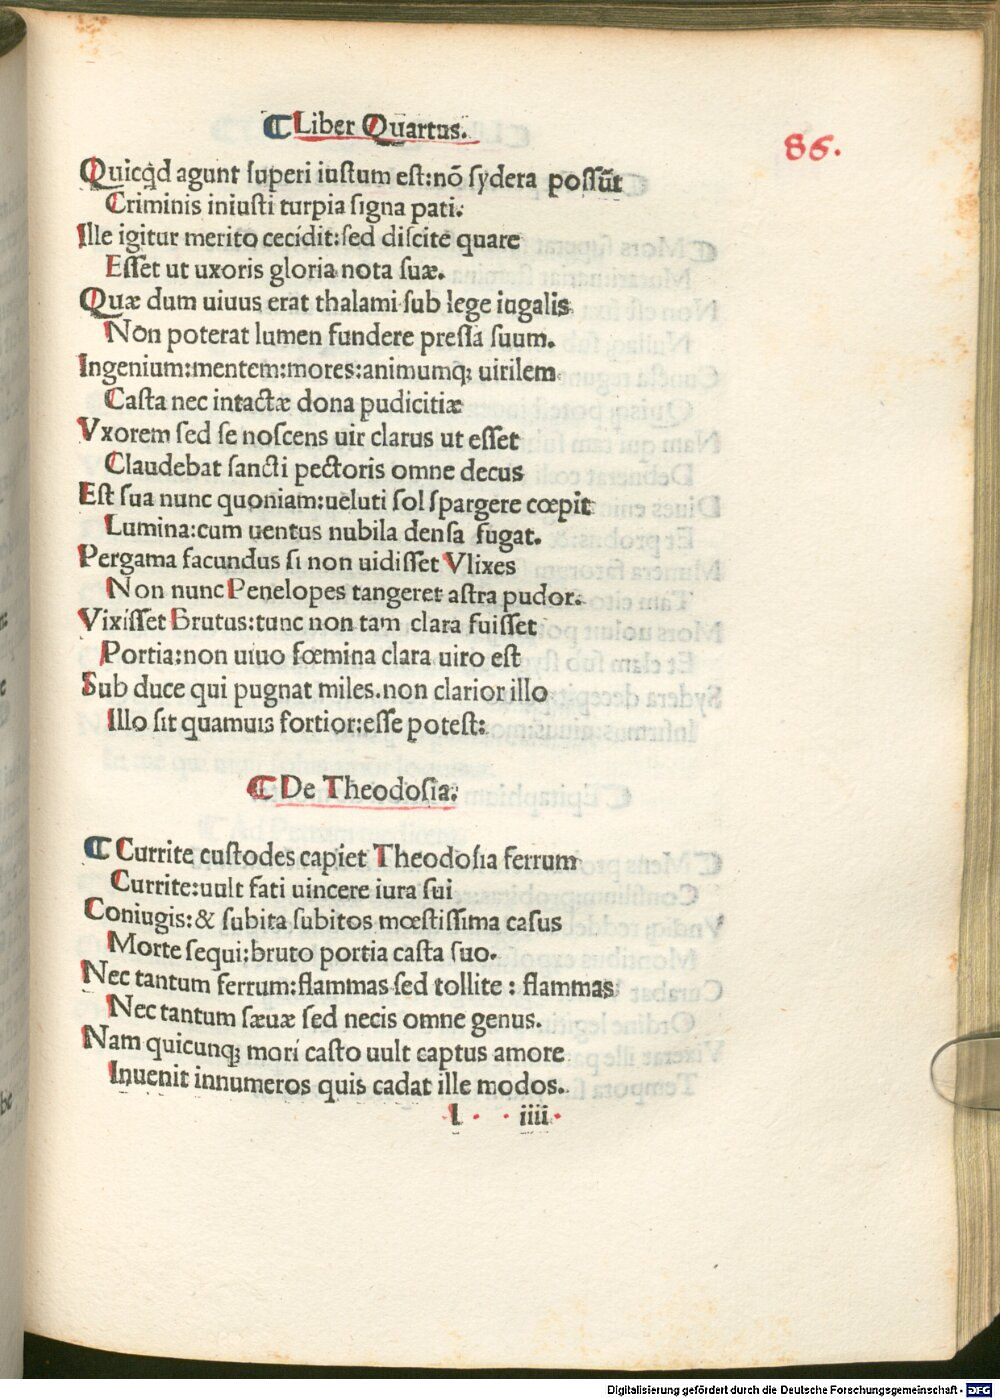 ¶ Liber Quartus.
86.
Quicq̃d agunt superi iustum est:nõ sydera possũt
Criminis iniusti turpia signa pati:
Ille igitur merito cecidit:sed discite quare
Esset ut uxoris gloria nota suæ.
Quæ dum uiuus erat thalami sub lege iugalis
Non poterat lumen fundere pressa suum.
Ingenium:mentem:mores:animumq; uirilem
Casta nec intactæ dona pudicitiæ
Vxorem sed se noscens uir clarus ut esset
Claudebat sancti pectoris omne decus
Est sua nunc quoniam:ueluti sol spargere cœpit
Lumina:cum uentus nubila densa fugat.
Pergama facundus si non uidisset Vlixes
Non nunc Penelopes tangeret astra pudor.
Vixisset Brutus:tunc non tam clara fuisset
Portia:non uiuo fœmina clara uiro est
Sub duce qui pugnat miles.non clarior illo
Illo sit quamuis fortior:esse potest:
¶ De Theodosia:
¶ Currite custodes capiet Theodosia ferrum
Currite:uult fati uincere iura sui
Coniugis:& subita subitos mœstissima casus
Morte sequi:bruto portia casta suo.
Nec tantum ferrum:flammas sed tollite : flammas
Nec tantum sæuæ sed necis omne genus.
Nam quicunq; mori casto uult captus amore
Inuenit innumeros quis cadat ille modos.
l iiii
Digitalisierung gefördert durch die Deutsche Forschungsgemeinschaft - DFG